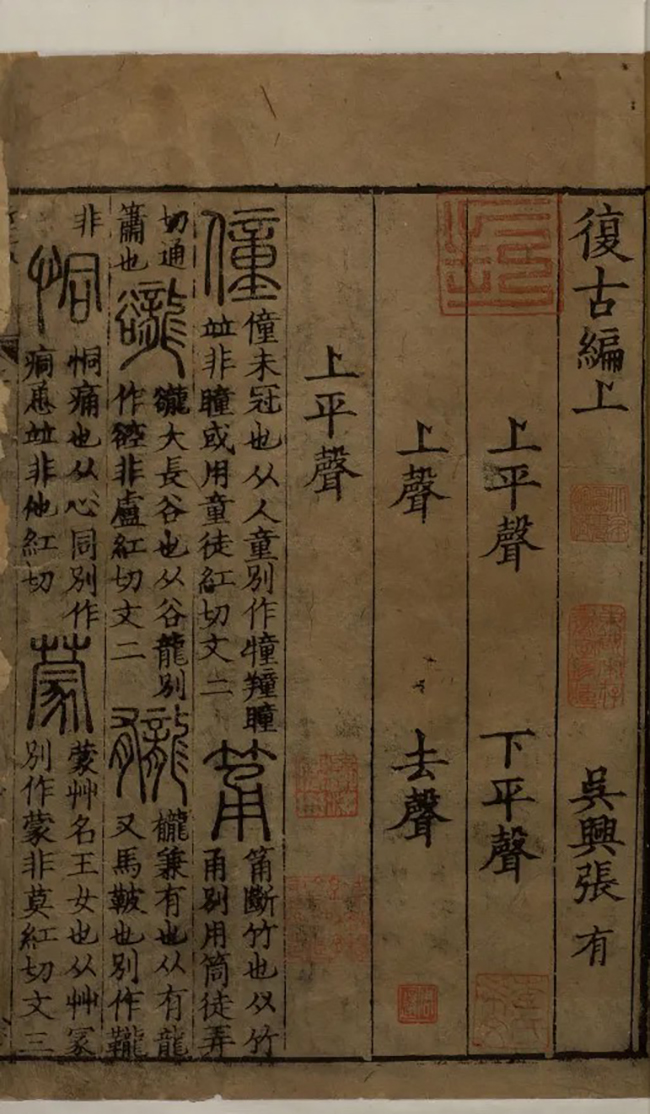 復古編上 吳興張有
上平聲 下平聲
上聲 去聲
上平聲
僮
僮未冠也从人童別作犝瞳
竝非瞳或用童徒紅切文二
筩
筩斷竹也从竹
甬別用筒徒弄
切通
簫也
豅
豅大長谷也从谷龍別
作谾非盧紅切文二
龓
龓兼有也从有龍
又馬鞁也別作
非
恫
恫痛也从心同別作
痌恿竝非他紅切
蒙
蒙艸名王女也从艸冡
別作蒙非莫紅切文三